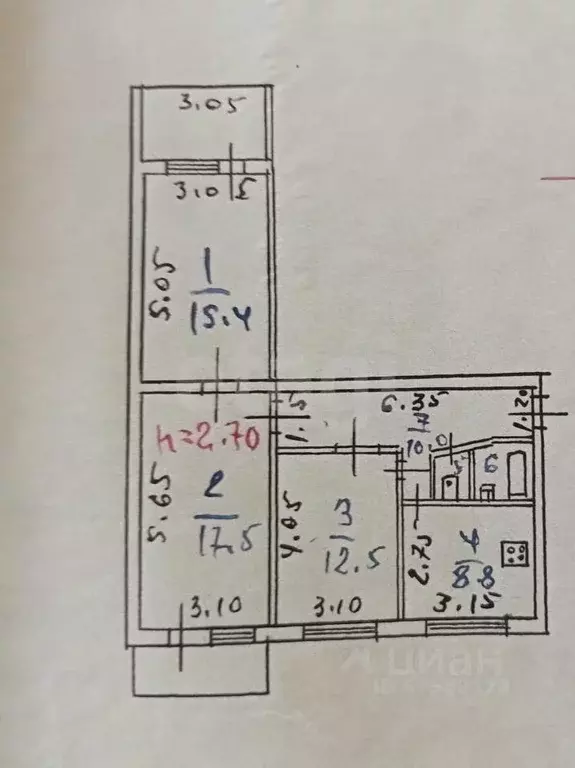 3.05
3.0
5.05
1
15.4
h=2.70
5.65
2
17.5
3.10
1.5
6.35
7
10
1.20
4.05
3
12.5
3.10
5
6
2.75
4
8.8
3.15